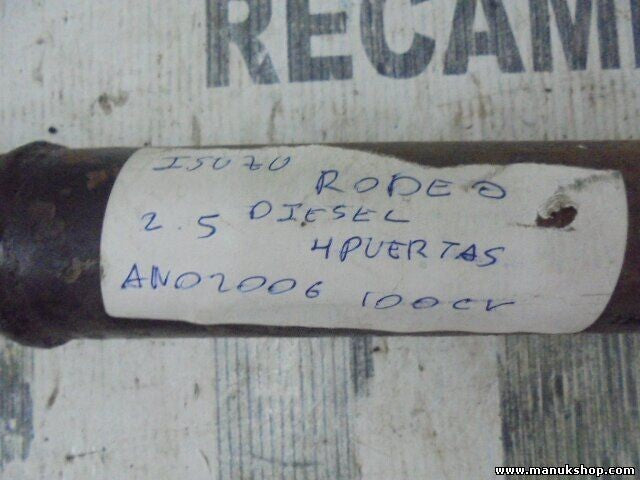 RECAM
ISUZU RODEO
2.5 DIESEL
4 PUERTAS
ANO 2006 100CV
www.manukshop.com